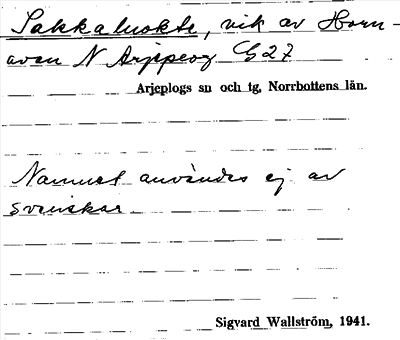 Sakkaluokte, vik av Horn-
avan N Arjepeog G27
Arjeplogs sn och tg, Norrbottens län.
Namnet användes ej av
svenskar
Sigvard Wallström, 1941.